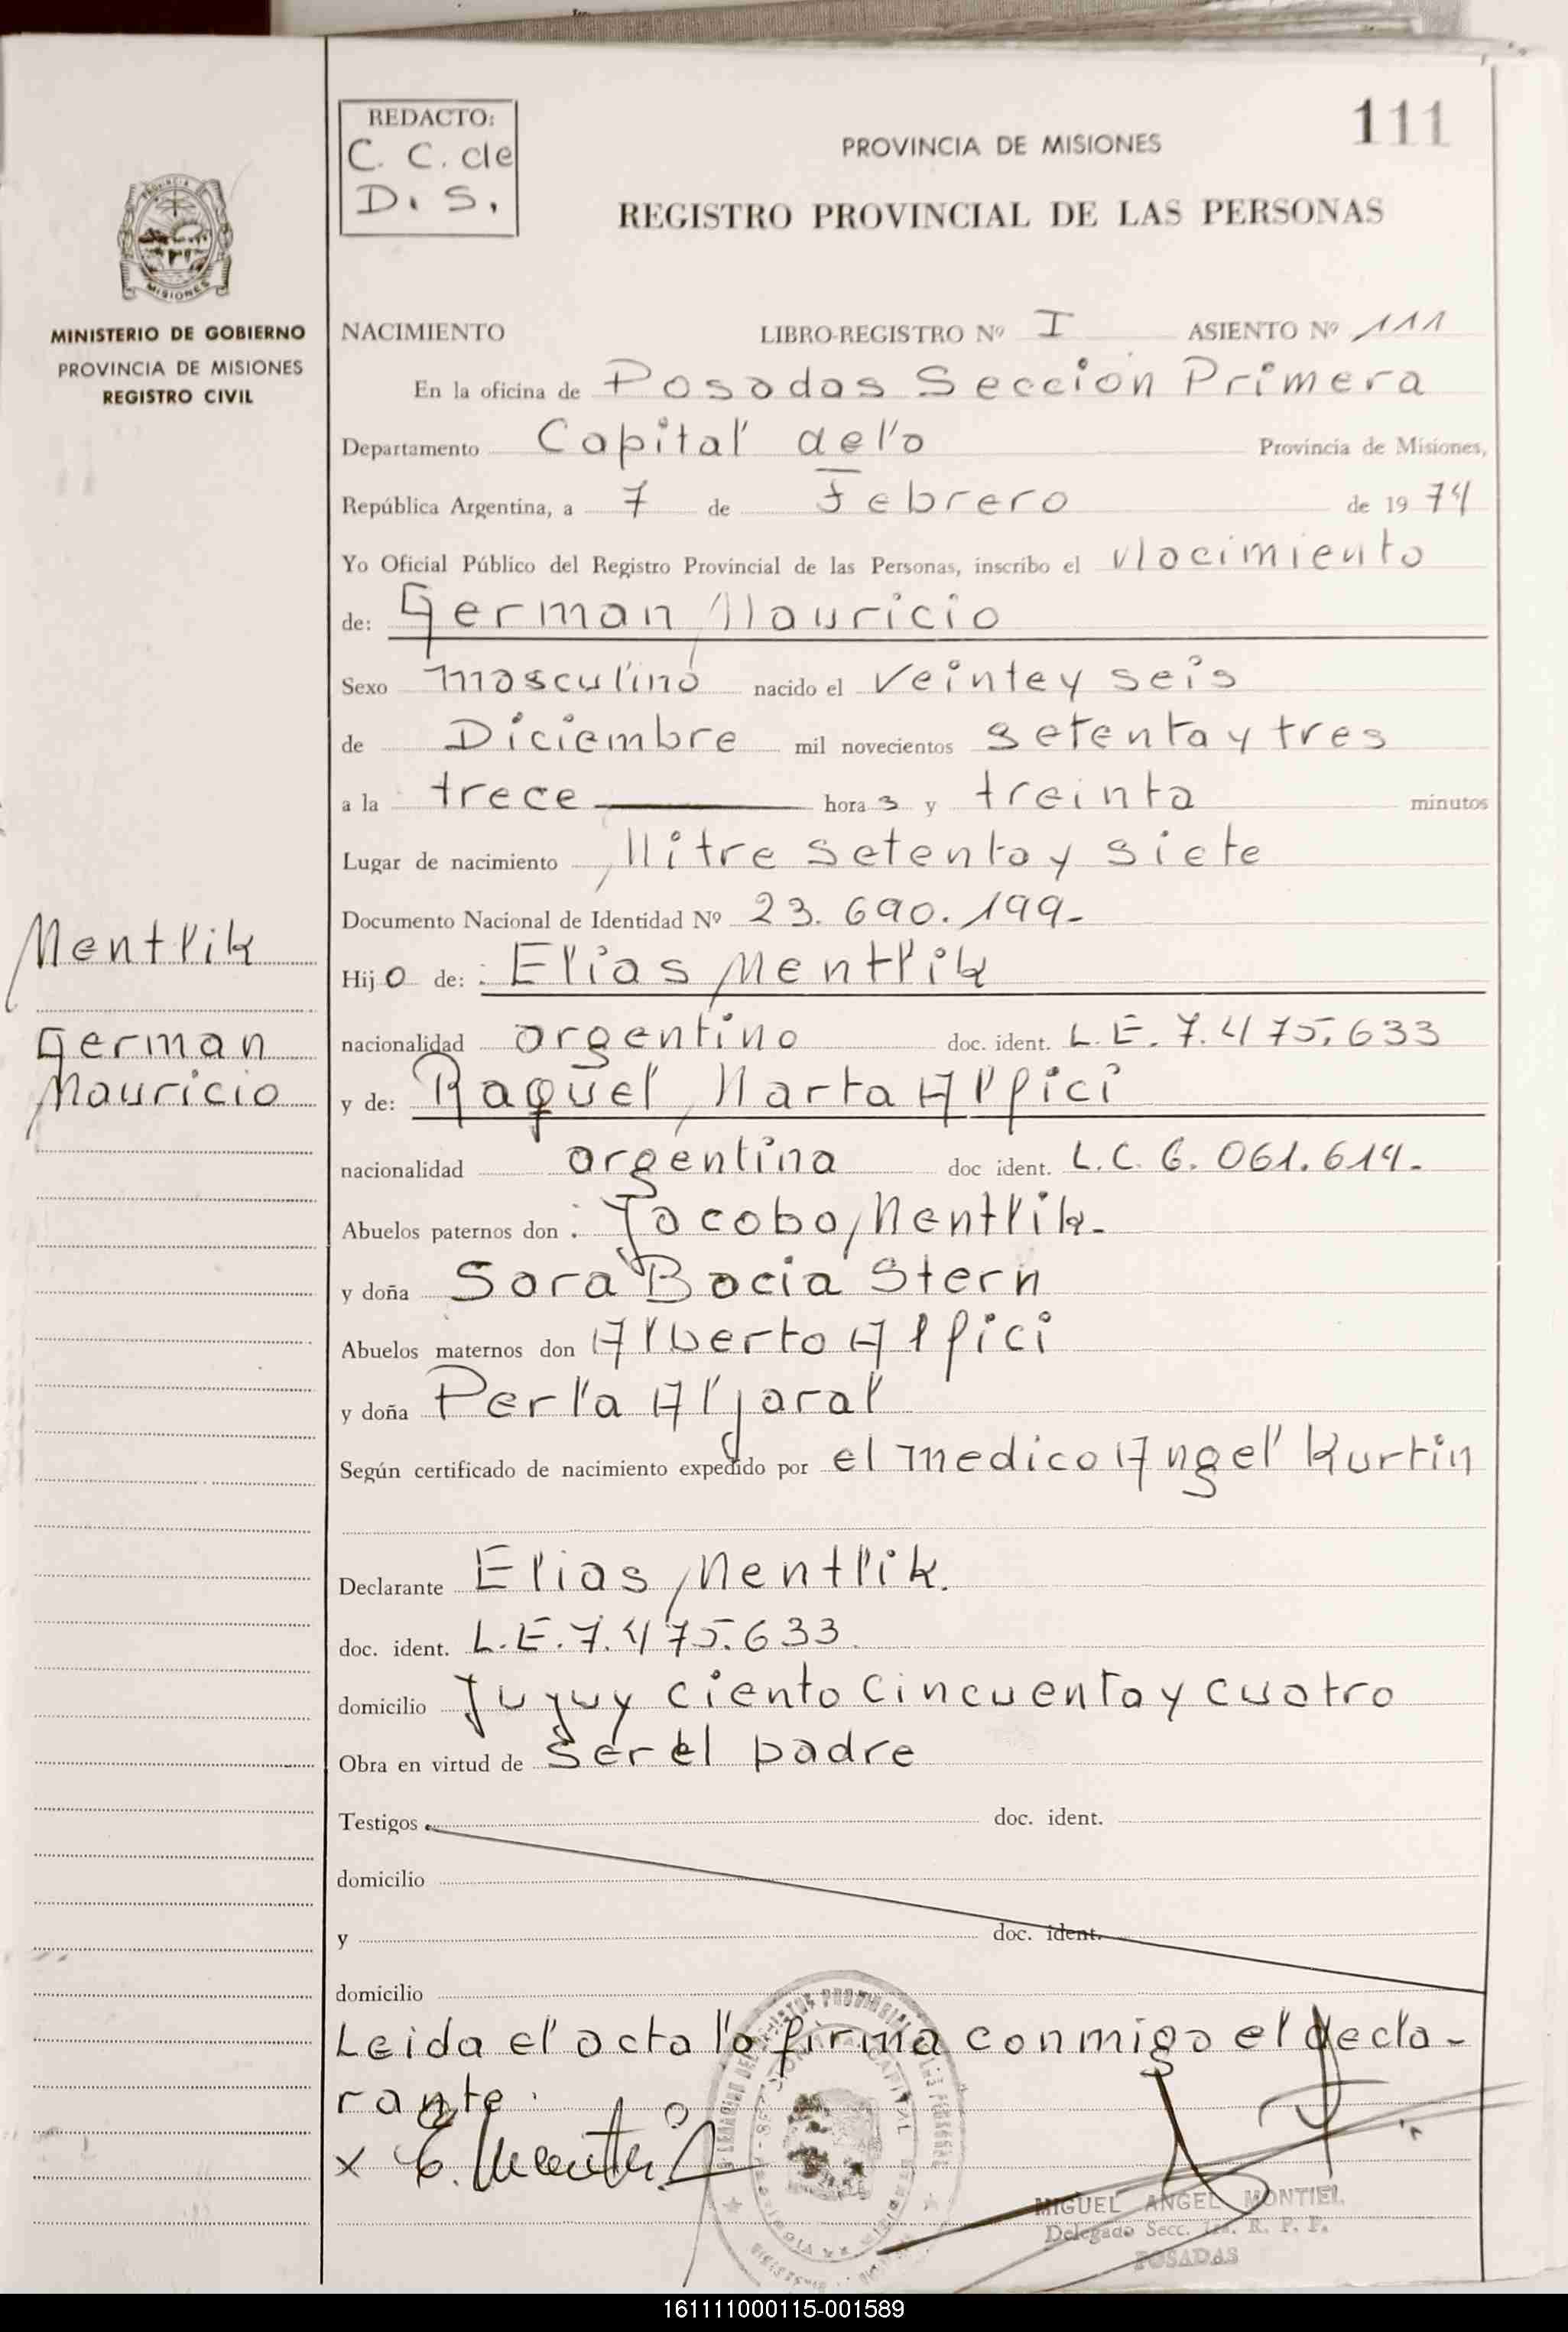 111
REDACTO:
C. C. de
D. S.
PROVINCIA DE MISIONES
REGISTRO PROVINCIAL DE LAS PERSONAS
PROVINCIA
MISIONES
MINISTERIO DE GOBIERNO
PROVINCIA DE MISIONES
REGISTRO CIVIL
NACIMIENTO LIBRO-REGISTRO Nº I ASIENTO Nº 111
En la oficina de Posadas Sección Primera
Departamento Capital de la Provincia de Misiones,
República Argentina, a 7 de Febrero de 1974
Yo Oficial Público del Registro Provincial de las Personas, inscribo el Nacimiento
de: German Mauricio
Sexo masculino nacido el veinte y seis
de Diciembre mil novecientos setenta y tres
a la trece hora s y treinta minutos
Lugar de nacimiento Mitre setenta y siete
Documento Nacional de Identidad Nº 23.690.199-
Mentlik
Hijo de: Elias Mentlik
German
nacionalidad argentino doc. ident. L.E. 7.475.633
Mauricio
y de: Raquel Marta Alfici
nacionalidad argentina doc ident. L.C. 6.061.614.
Abuelos paternos don: Jacobo Mentlik-
y doña Sara Bacia Stern
Abuelos maternos don Alberto Alfici
y doña Perla Aljaral
Según certificado de nacimiento expedido por el medico Angel Kurtin
Declarante Elias Mentlik.
doc. ident. L.E. 7.475.633.
domicilio Jujuy ciento cincuenta y cuatro
Obra en virtud de ser el padre
Testigos doc. ident.
domicilio
y doc. ident.
domicilio
Leida el acta la firma conmigo el decla-
rante.
x E. Mentlik
MIGUEL ANGEL MONTIEL
Delegado Secc. 1ra. R. P. P.
POSADAS
161111000115-001589